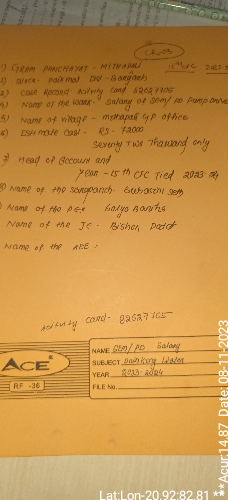 CFC-03
1) GRAM PANCHAYAT - MITHAPALI
15th FC 2023-2
2) Block - Dist - Bargarh
3) Case Record Activity Card 82627705
4) Name of the Work - Salary of SEM/ PO Pump
5) Name of village - Mithapali GP office
6) Estimate Cost - RS - 72000
Seventy Two Thousand only
7) Head of Account and
Year - 15th CFC Tied 2023-24
8) Name of the Sarapanch - Subasini Seth
Name of the P.E.O
Name of the JE - Bishnu
Name of the AEE :
Activity card -
ACE
RF -36
NAME SEM/PO Salary
SUBJECT
YEAR 2023-2024
FILE No.
Lat:Lon-20.92:82.81 **Acur:14.87 Date:08-11-2023